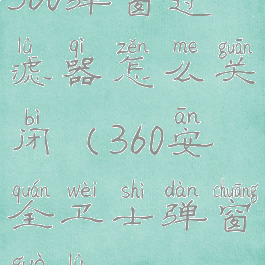 360弹窗过
lǜ qì zěn me guān
滤器怎么关
bì ān
闭（360安
quán wèi shì dàn chuāng
全卫士弹窗
guò lǜ